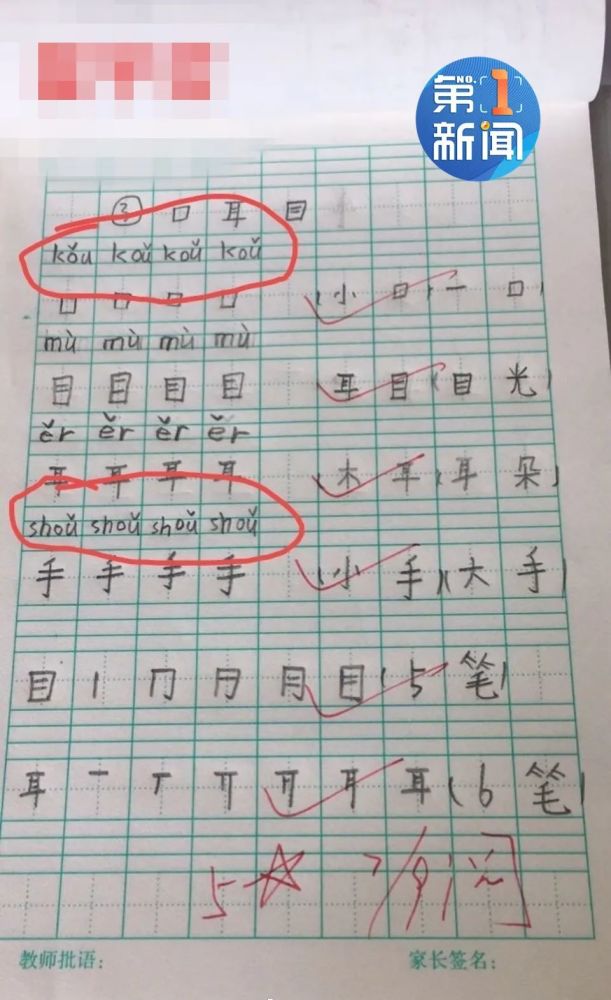 第1新闻
NO.
③ 口 耳 目
kǒu koǔ koǔ koǔ
口 口 口 口 (小口)(一口)
mù mù mù mù
目 目 目 目 (耳目)(目光)
ěr ěr ěr ěr
耳 耳 耳 耳 (木耳)(耳朵)
shoǔ shoǔ shoǔ shoǔ
手 手 手 手 (小手)(大手)
目 丨 冂 月 目 (5笔)
耳 一 丅 丌 耳 (6笔)
5☆ 阅
教师批语: 家长签名: